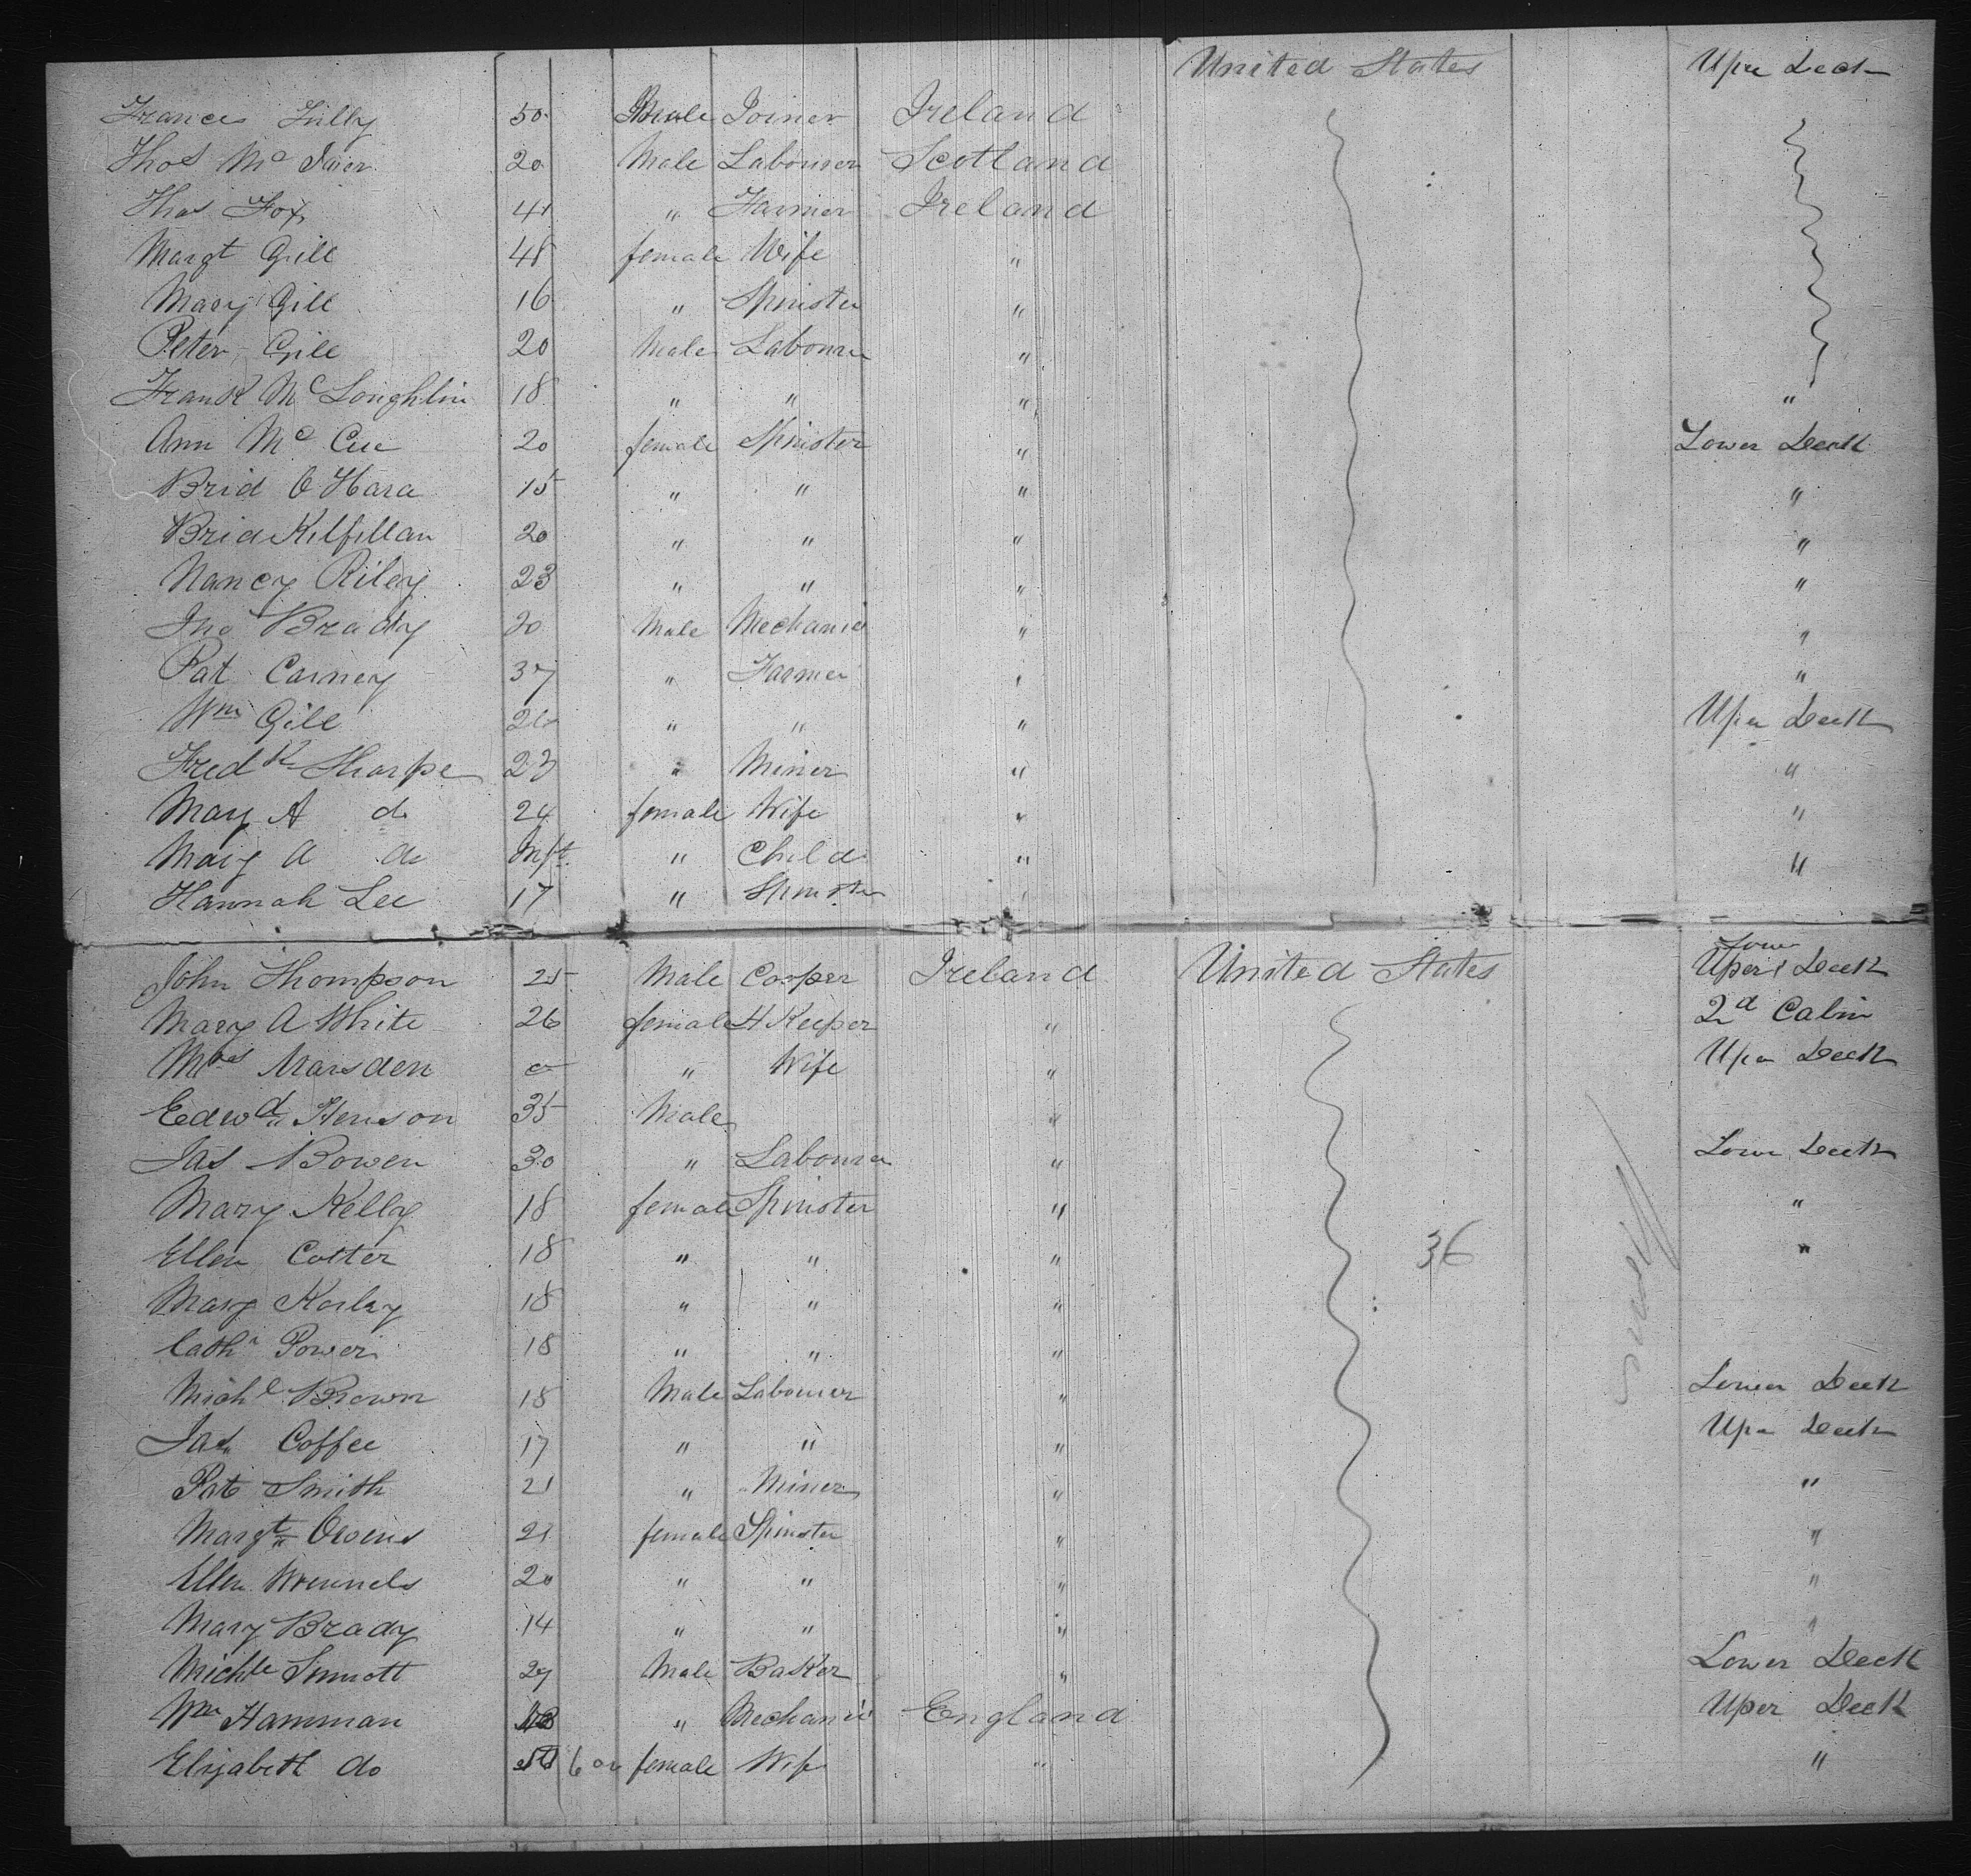 United States Uper Deck
Frances Lilly 50 Male Joiner Ireland
Thos Mc 20 Male Labourer Scotland
Thos Fox 41 " Farmer Ireland
Margt Gill 48 female Wife "
Mary Gill 16 " Spinster "
Peter Gill 20 Male Labourer "
Frank McLoughlin 18 " " " "
Ann McCue 20 female Spinster " Lower Deck
Brid O Hara 15 " " " "
Brid Kilfillan 20 " " " "
Nancy Riley 23 " " " "
Jno Brady 20 Male Mechanic " "
Pat Carney 37 " Farmer " "
Wm Gill 26 " " " Uper Deck
Fredk Sharpe 23 " Miner " "
Mary A do 24 female Wife " "
Mary A do Inft " Child " "
Hannah Lee 17 " Spinster "
Lower
John Thompson 25 Male Cooper Ireland United States Uper Deck
Mary A White 26 female H Keeper " 2d Cabin
Mrs Marsden " Wife " Uper Deck
Edwd Henson 35 Male "
Jas Bowen 30 " Labourer " Lower Deck
Mary Kelly 18 female Spinster " "
Ellen Cotter 18 " " " 36 "
Mary Korley 18 " " "
Cathn Power 18 " " "
Michl Brown 18 Male Labourer " Lower Deck
Jas Coffee 17 " " " Uper Deck
Pat Smith 21 " Miner " "
Margt Owens 21 female Spinster " "
Ellen 20 " " " "
Mary Brady 14 " " " "
Michl Sinnott 27 Male Baker " Lower Deck
Wm Hamman " Mechanic England Uper Deck
Elizabeth do female Wife " "